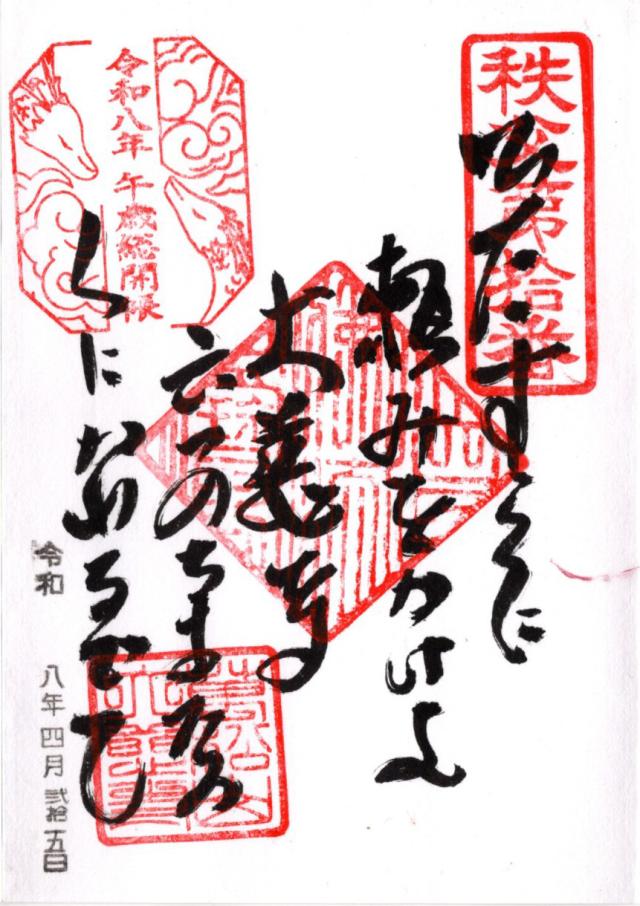 秩父第拾番
ひたすらに
頼みをかけよ
大慈寺
六のちまたの
くにかはるべし
令和八年 午歳総開帳
令和 八年四月弐拾五日